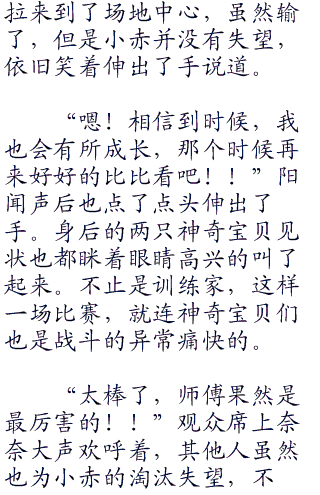 拉来到了场地中心，虽然输
了，但是小赤并没有失望，
依旧笑着伸出了手说道。
“嗯！相信到时候，我
也会有所成长，那个时候再
来好好的比比看吧！！”阳
闻声后也点了点头伸出了
手。身后的两只神奇宝贝见
状也都眯着眼睛高兴的叫了
起来。不止是训练家，这样
一场比赛，就连神奇宝贝们
也是战斗的异常痛快的。
“太棒了，师傅果然是
最厉害的！！”观众席上奈
奈大声欢呼着，其他人虽然
也为小赤的淘汰失望，不